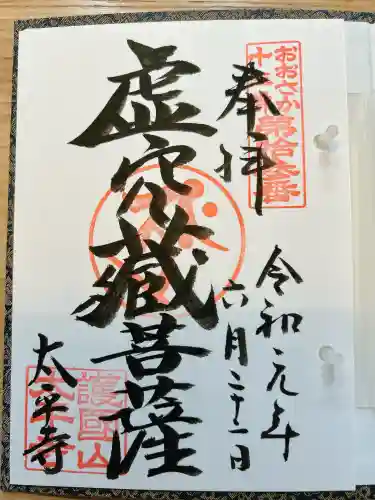 おおさか
十三佛
第拾参番
奉拝
令和元年
六月二十一日
虚空藏菩薩
太平寺
護國山
太平寺